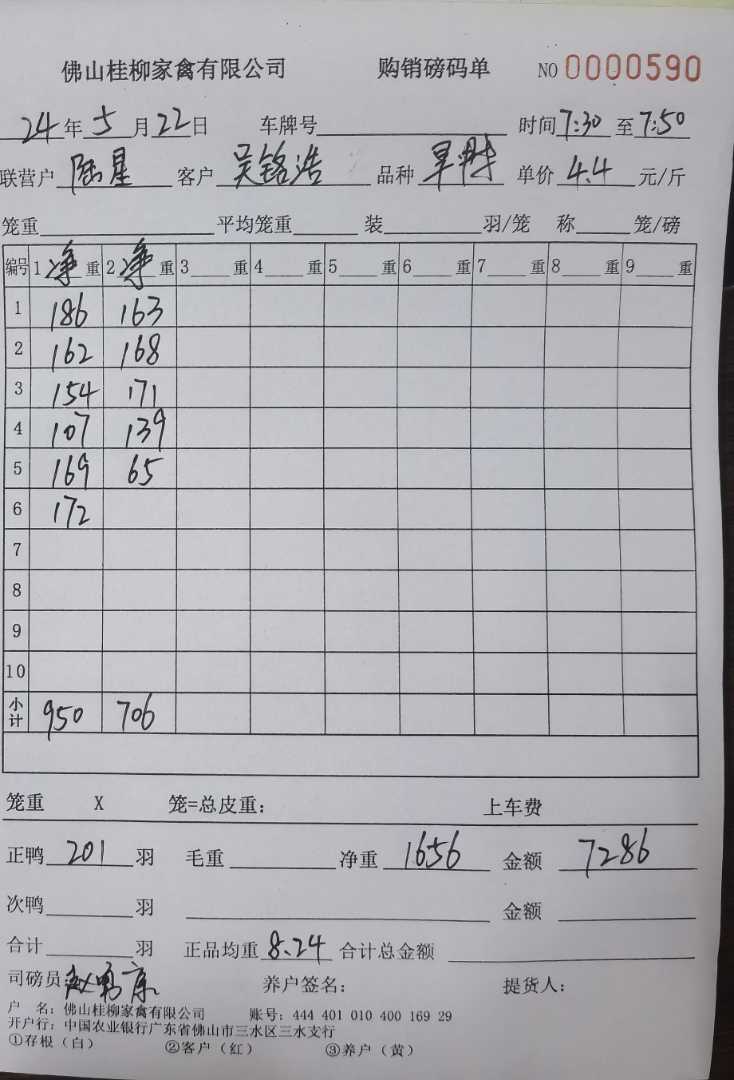 佛山桂柳家禽有限公司 购销磅码单 NO 0000590
24年5月22日 车牌号 时间7:30至7:50
联营户 陆星 客户 吴铭浩 品种 单价 4.4 元/斤
笼重 平均笼重 装 羽/笼 称 笼/磅
编号 1 净 重 2 净 重 3 重 4 重 5 重 6 重 7 重 8 重 9 重
1 186 163
2 162 168
3 154 171
4 107 139
5 169 65
6 172
7
8
9
10
小计 950 706
笼重 X 笼=总皮重: 上车费
正鸭 201 羽 毛重 净重 1656 金额 7286
次鸭 羽 金额
合计 羽 正品均重 8.24 合计总金额
司磅员 养户签名: 提货人:
户 名: 佛山桂柳家禽有限公司 账号: 444 401 010 400 169 29
开户行: 中国农业银行广东省佛山市三水区三水支行
①存根(白) ②客户(红) ③养户(黄)